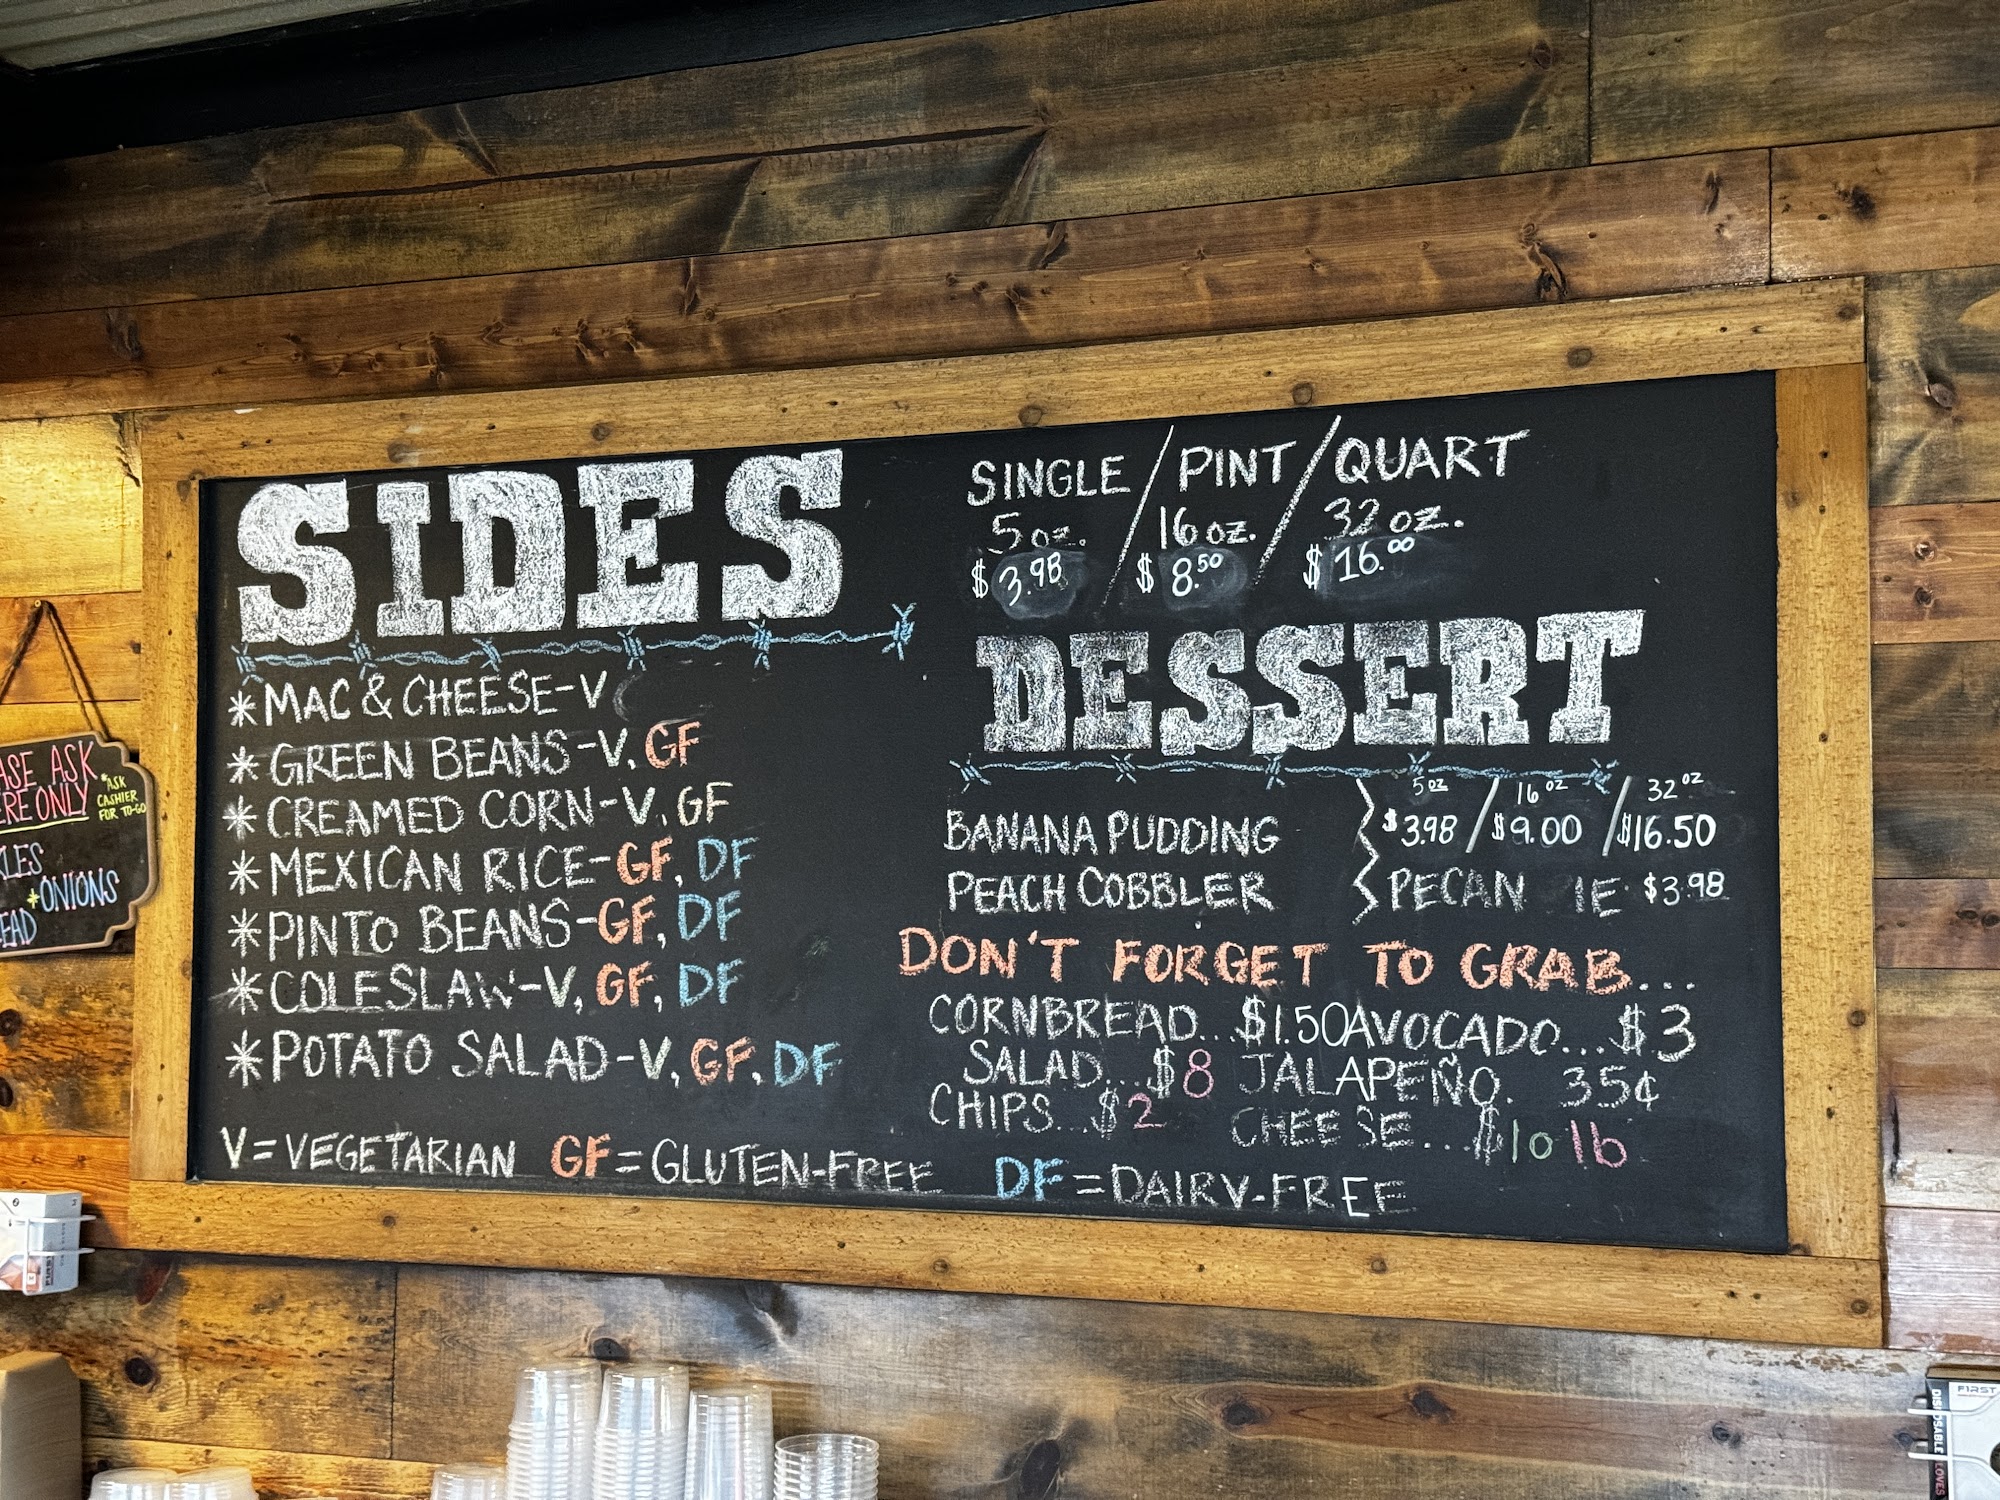 SIDES
* MAC & CHEESE-V
* GREEN BEANS-V, GF
* CREAMED CORN-V, GF
* MEXICAN RICE-GF, DF
* PINTO BEANS-GF, DF
* COLESLAW-V, GF, DF
* POTATO SALAD-V, GF, DF
SINGLE / PINT / QUART
5 oz. / 16 oz. / 32 oz.
$3.98 / $8.50 / $16.00
DESSERT
5 oz / 16 oz / 32 oz
BANANA PUDDING $3.98 / $9.00 / $16.50
PEACH COBBLER PECAN IE $3.98
DON'T FORGET TO GRAB...
CORNBREAD...$1.50 AVOCADO...$3
SALAD...$8 JALAPEÑO. 35¢
CHIPS...$2 CHEESE...$10 lb
V=VEGETARIAN GF=GLUTEN-FREE DF=DAIRY-FREE
ASE ASK
ERE ONLY
*ASK
CASHIER
FOR TO-GO
KLES
*ONIONS
EAD
FIRST